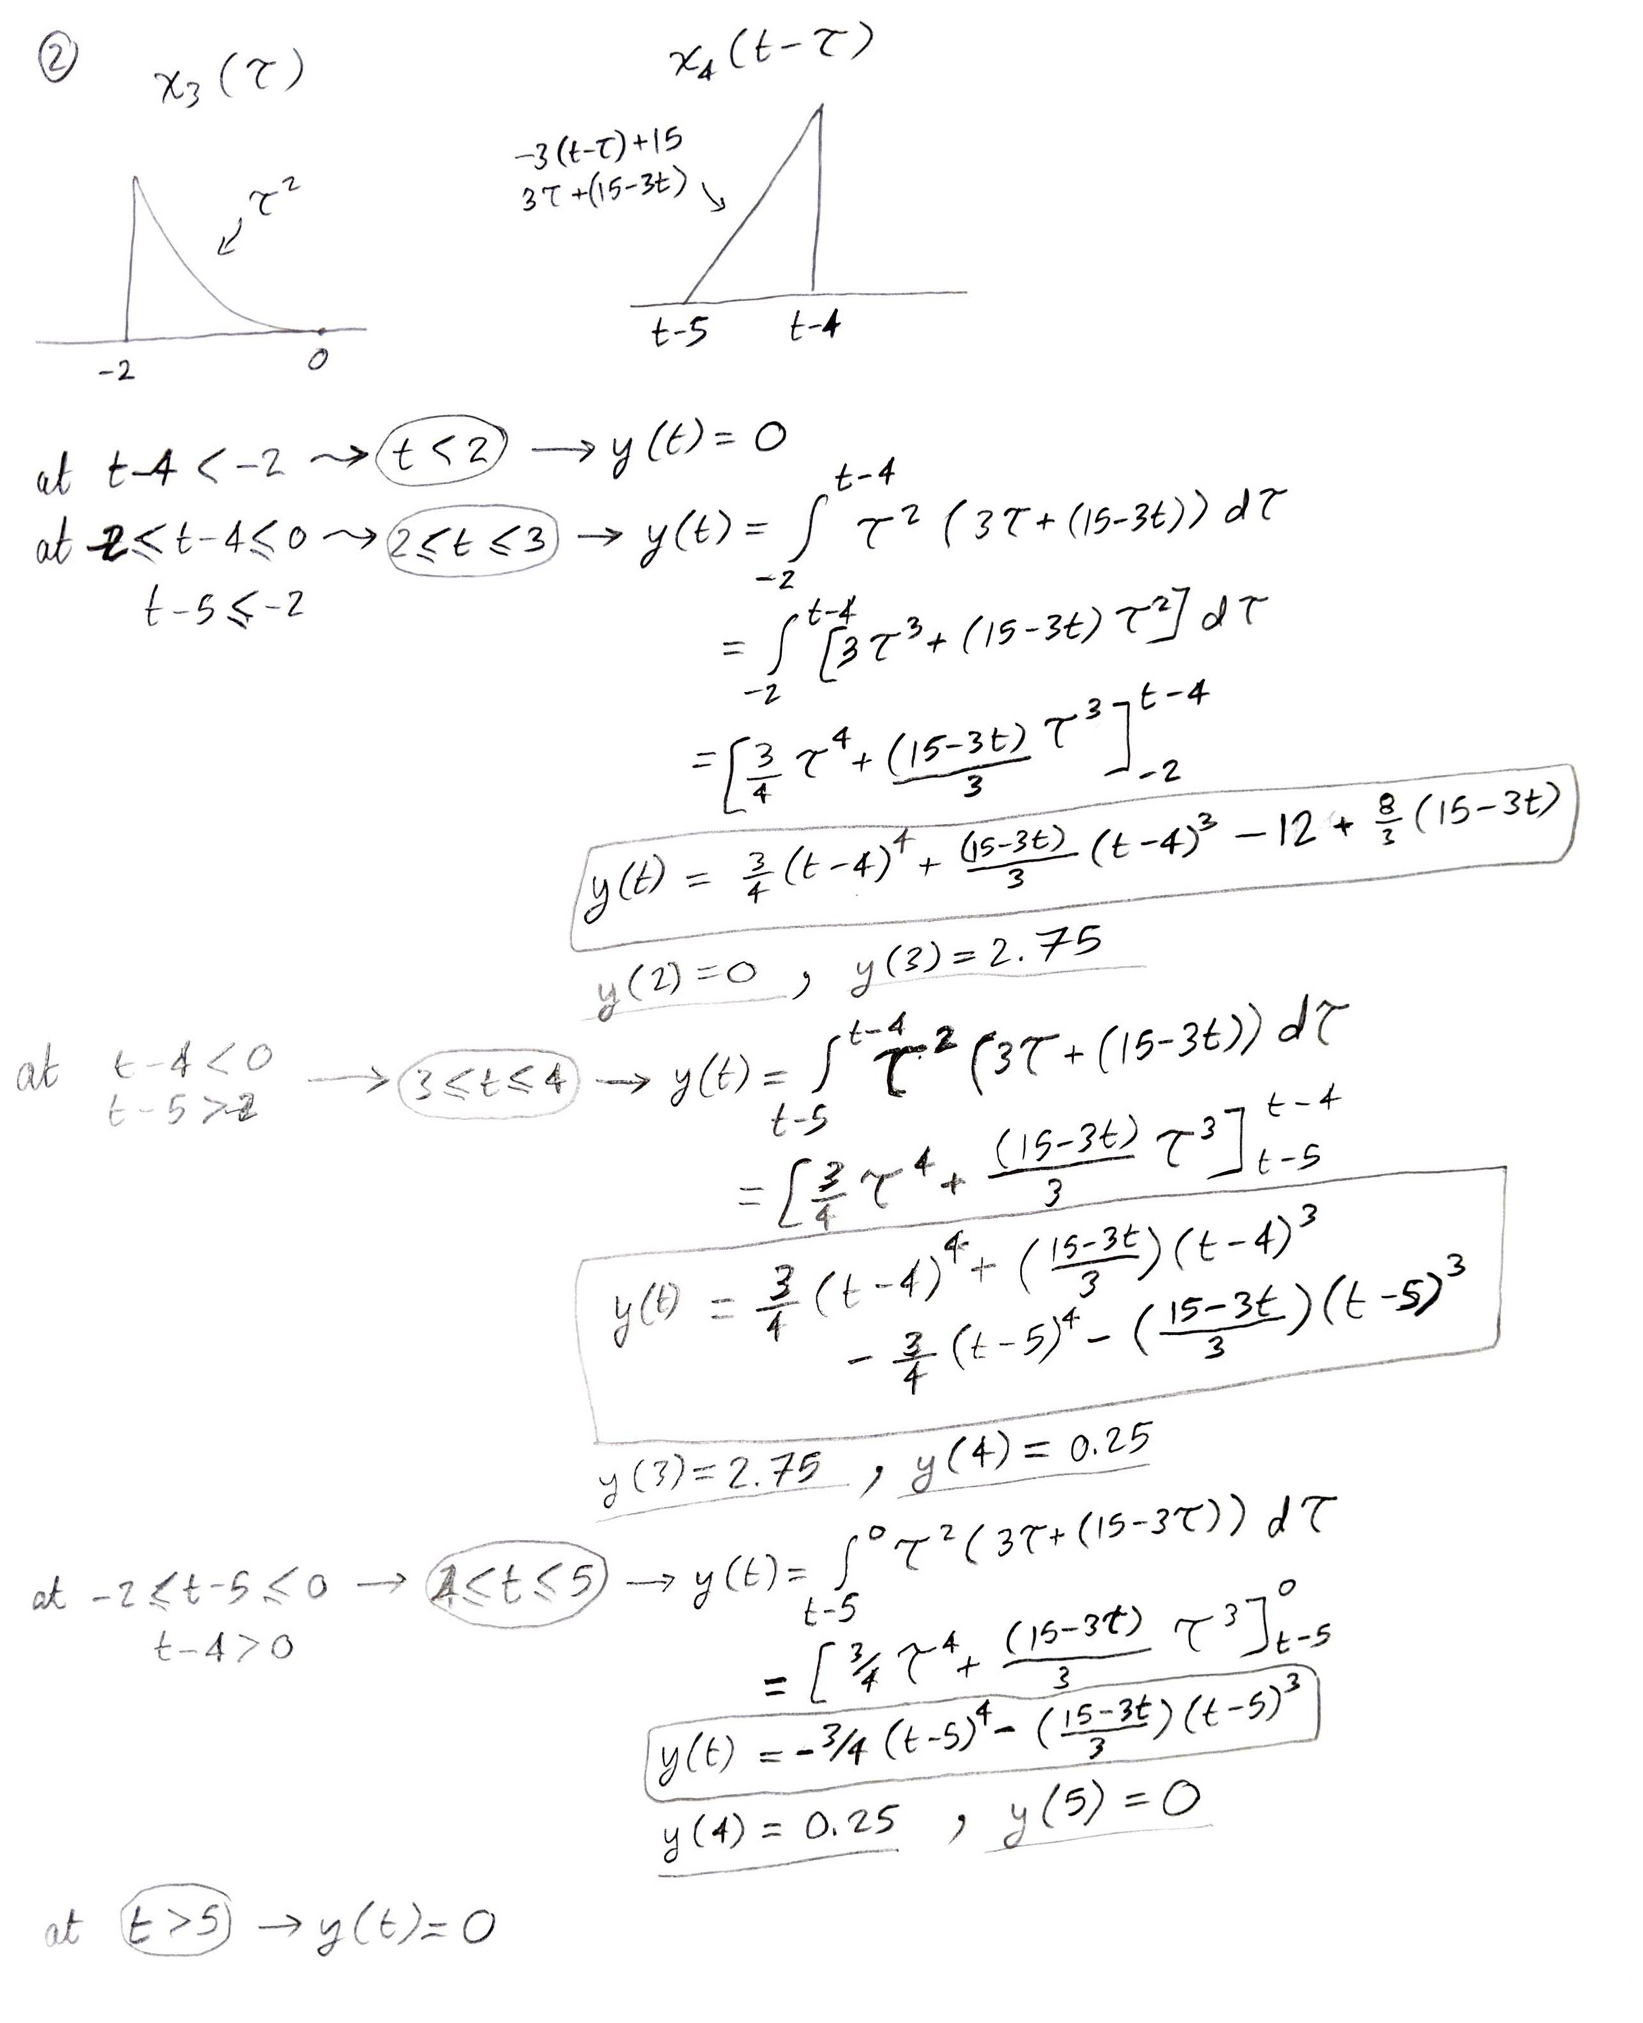 ②
x₃(τ)
x₄(t-τ)
-3(t-τ)+15
3τ+(15-3t)
τ²
-2 0
t-5 t-4
at t-4 < -2 ⇝ t≤2 → y(t) = 0
at -2≤t-4≤0 ⇝ 2≤t≤3 → y(t) = ∫_{-2}^{t-4} τ² (3τ+(15-3t)) dτ
t-5≤-2
= ∫_{-2}^{t-4} [3τ³+(15-3t) τ²] dτ
= [3/4 τ⁴ + (15-3t)/3 τ³]_{-2}^{t-4}
y(t) = 3/4 (t-4)⁴ + (15-3t)/3 (t-4)³ - 12 + 8/3 (15-3t)
y(2)=0 , y(3)=2.75
at t-4<0 → 3≤t≤4 → y(t) = ∫_{t-5}^{t-4} τ² (3τ+(15-3t)) dτ
t-5>-2
= [3/4 τ⁴ + (15-3t)/3 τ³]_{t-5}^{t-4}
y(t) = 3/4 (t-4)⁴ + ((15-3t)/3) (t-4)³
- 3/4 (t-5)⁴ - ((15-3t)/3) (t-5)³
y(3)=2.75 , y(4)=0.25
at -2≤t-5≤0 → 4≤t≤5 → y(t) = ∫_{t-5}^{0} τ² (3τ+(15-3τ)) dτ
t-4>0
= [3/4 τ⁴ + (15-3t)/3 τ³]_{t-5}^{0}
y(t) = -3/4 (t-5)⁴ - ((15-3t)/3) (t-5)³
y(4) = 0.25 , y(5) = 0
at t>5 → y(t)=0